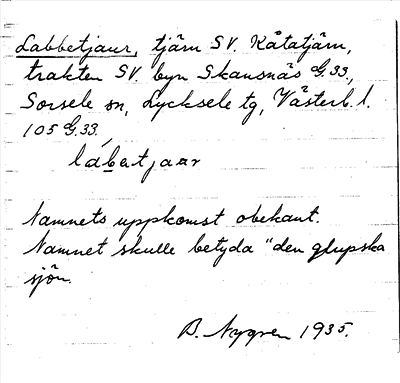 Labbetjaur, tjärn SV. Kåtatjärn,
trakten SV. byn Skansnäs G.33.,
Sorsele sn, Lycksele tg, Västerb. l.
105 G.33.
labetjaar
Namnets uppkomst obekant.
Namnet skulle betyda "den glupska
sjön.
B. Nygren 1935.